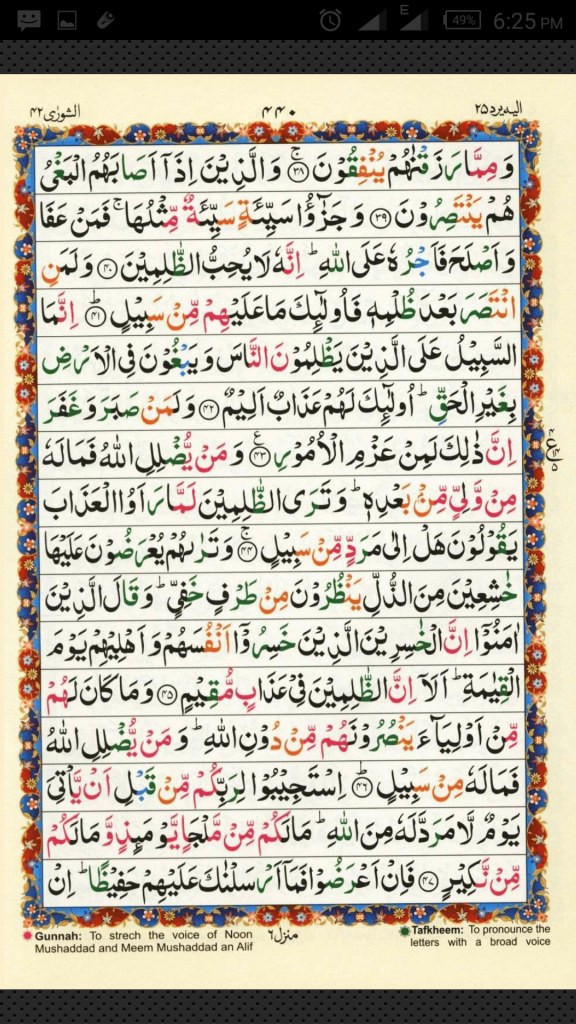 E 49% 6:25 PM
الشورٰى ۴۲ ۴۴۰ اليه يرد ۲۵
وَ مِمَّا رَزَقْنٰهُمْ يُنْفِقُوْنَ ۚ ﴿۳۸﴾ وَالَّذِيْنَ اِذَاۤ اَصَابَهُمُ الْبَغْيُ
هُمْ يَنْتَصِرُوْنَ ﴿۳۹﴾ وَ جَزٰٓؤُا سَيِّئَةٍ سَيِّئَةٌ مِّثْلُهَا ۚ فَمَنْ عَفَا
وَ اَصْلَحَ فَاَجْرُهٗ عَلَى اللّٰهِ ؕ اِنَّهٗ لَا يُحِبُّ الظّٰلِمِيْنَ ﴿۴۰﴾ وَ لَمَنِ
انْتَصَرَ بَعْدَ ظُلْمِهٖ فَاُولٰٓئِكَ مَا عَلَيْهِمْ مِّنْ سَبِيْلٍ ؕ ﴿۴۱﴾ اِنَّمَا
السَّبِيْلُ عَلَى الَّذِيْنَ يَظْلِمُوْنَ النَّاسَ وَ يَبْغُوْنَ فِى الْاَرْضِ
بِغَيْرِ الْحَقِّ ؕ اُولٰٓئِكَ لَهُمْ عَذَابٌ اَلِيْمٌ ﴿۴۲﴾ وَ لَمَنْ صَبَرَ وَ غَفَرَ
اِنَّ ذٰلِكَ لَمِنْ عَزْمِ الْاُمُوْرِ ۠ ﴿۴۳﴾ وَ مَنْ يُّضْلِلِ اللّٰهُ فَمَا لَهٗ
مِنْ وَّلِيٍّ مِّنْۢ بَعْدِهٖ ؕ وَ تَرَى الظّٰلِمِيْنَ لَمَّا رَاَوُا الْعَذَابَ
يَقُوْلُوْنَ هَلْ اِلٰى مَرَدٍّ مِّنْ سَبِيْلٍ ۚ ﴿۴۴﴾ وَ تَرٰىهُمْ يُعْرَضُوْنَ عَلَيْهَا
خٰشِعِيْنَ مِنَ الذُّلِّ يَنْظُرُوْنَ مِنْ طَرْفٍ خَفِيٍّ ؕ وَ قَالَ الَّذِيْنَ
اٰمَنُوْۤا اِنَّ الْخٰسِرِيْنَ الَّذِيْنَ خَسِرُوْۤا اَنْفُسَهُمْ وَ اَهْلِيْهِمْ يَوْمَ
الْقِيٰمَةِ ؕ اَلَاۤ اِنَّ الظّٰلِمِيْنَ فِىْ عَذَابٍ مُّقِيْمٍ ﴿۴۵﴾ وَ مَا كَانَ لَهُمْ
مِّنْ اَوْلِيَآءَ يَنْصُرُوْنَهُمْ مِّنْ دُوْنِ اللّٰهِ ؕ وَ مَنْ يُّضْلِلِ اللّٰهُ
فَمَا لَهٗ مِنْ سَبِيْلٍ ؕ ﴿۴۶﴾ اِسْتَجِيْبُوْا لِرَبِّكُمْ مِّنْ قَبْلِ اَنْ يَّاْتِيَ
يَوْمٌ لَّا مَرَدَّ لَهٗ مِنَ اللّٰهِ ؕ مَا لَكُمْ مِّنْ مَّلْجَاٍ يَّوْمَئِذٍ وَّ مَا لَكُمْ
مِّنْ نَّكِيْرٍ ﴿۴۷﴾ فَاِنْ اَعْرَضُوْا فَمَاۤ اَرْسَلْنٰكَ عَلَيْهِمْ حَفِيْظًا ؕ اِنْ
Gunnah: To strech the voice of Noon
Mushaddad and Meem Mushaddad an Alif
منزل ۶
Tafkheem: To pronounce the
letters with a broad voice